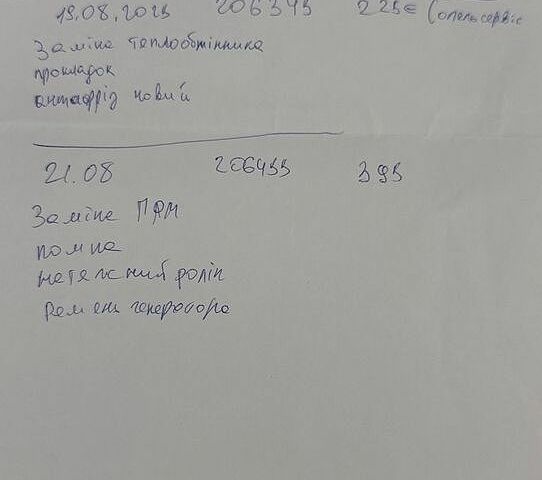 19.08.2025 206345 225€ (опельсервіс
Заміна теплообмінника
прокладок
антифріз новий
21.08 206455 395
Заміна ГРМ
помпа
натяжний ролік
Ремень генератора